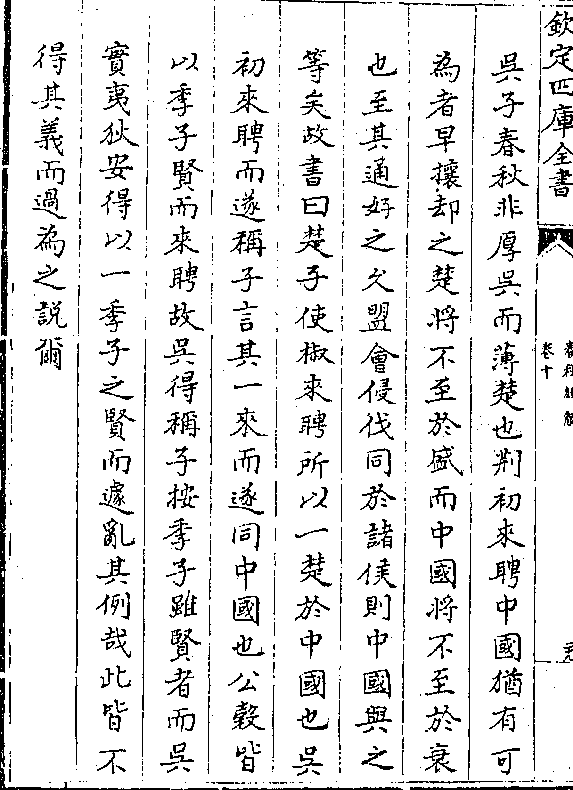 欽定四庫全書
春秋經解
卷十
吳子春秋非厚吳而薄楚也荆初來聘中國猶有可
為者早攘却之楚將不至於盛而中國將不至於衰
也至其通好之久盟會侵伐同於諸侯則中國與之
等矣故書曰楚子使椒來聘所以一楚於中國也吳
初來聘而遂稱子言其一來而遂同中國也公穀皆
以季子賢而來聘故吳得稱子按季子雖賢者而吳
實夷狄安得以一季子之賢而遽亂其例哉此皆不
得其義而過為之說爾